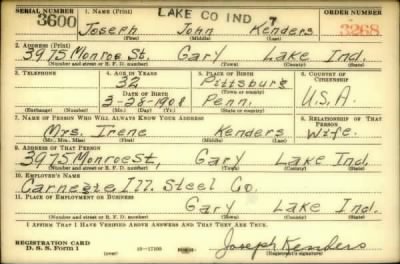 SERIAL NUMBER 1. NAME (Print) LAKE CO IND 7 ORDER NUMBER
3600 Joseph John Kenders 3268
(First) (Middle) (Last)
2. ADDRESS (Print)
3975 Monroe St. Gary Lake Ind.
(Number and street or R. F. D. number) (Town) (County) (State)
3. TELEPHONE 4. AGE IN YEARS 5. PLACE OF BIRTH 6. COUNTRY OF CITIZENSHIP
32 Pittsburg
DATE OF BIRTH (Town or county)
3-28-1908 Penn. U.S.A.
(Exchange) (Number) (Mo.) (Day) (Yr.) (State or country)
7. NAME OF PERSON WHO WILL ALWAYS KNOW YOUR ADDRESS 8. RELATIONSHIP OF THAT PERSON
Mrs. Irene Kenders Wife.
(Mr., Mrs., Miss) (First) (Middle) (Last)
9. ADDRESS OF THAT PERSON
3975 Monroe St, Gary Lake Ind.
(Number and street or R. F. D. number) (Town) (County) (State)
10. EMPLOYER'S NAME
Carnegie Ill. Steel Co.
11. PLACE OF EMPLOYMENT OR BUSINESS
Gary Lake Ind.
(Number and street or R. F. D. number) (Town) (County) (State)
I AFFIRM THAT I HAVE VERIFIED ABOVE ANSWERS AND THAT THEY ARE TRUE.
REGISTRATION CARD Joseph Kenders
D. S. S. Form 1 (over) (Registrant's signature)